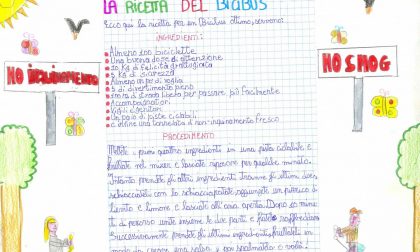 LA RICETTA DEL BICIBUS
Ecco qui la ricetta per un Bicibus ottimo, servono:
INGREDIENTI:
Almeno 100 biciclette
Una buona dose di attenzione
10 Kg di felicità
5 Kg di sicurezza
Almeno un po' di voglia
5 di divertimento
di strada libera per passare più facilmente
Accompagnatori
Vigili e genitori
Un paio di piste ciclabili
E infine una tonnellata di non-inquinamento fresco
NO INQUINAMENTO
NO SMOG
PROCEDIMENTO
Mettete i primi quattro ingredienti in una pista ciclabile e
frullate nel mixer e lasciate riposare per qualche minuto.
Intanto prendete gli altri ingredienti tranne gli ultimi due,
schiacciateli con lo schiacciapatate aggiungete un pizzico di
e limone e lasciate all'aria aperta. Dopo 10 minuti
di percorso unite insieme le due parti e fatele raffreddare.
Successivamente prendete gli ultimi ingredienti, frullateli in
modo da creare una salsa e poi spalmatela e voilà!